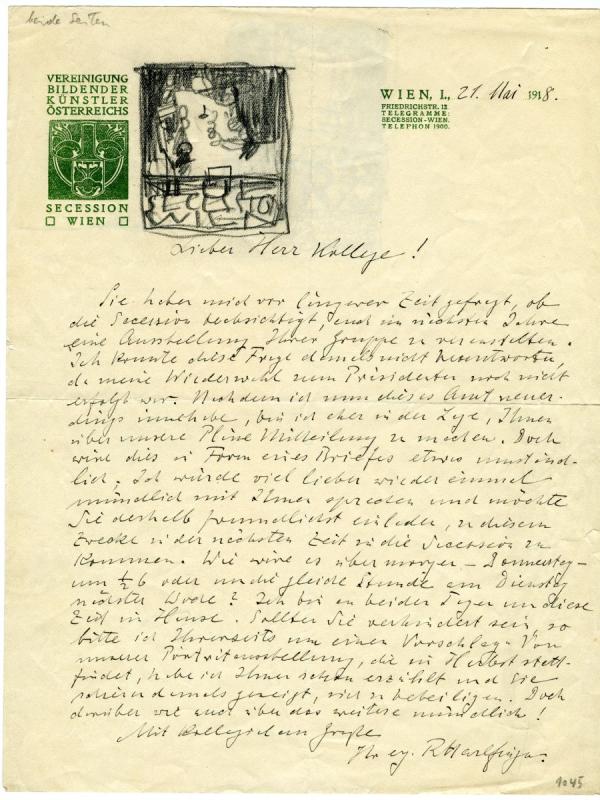 beide Seiten
VEREINIGUNG
BILDENDER
KÜNSTLER
ÖSTERREICHS
SECESSION
WIEN
SECESSION
WIEN
WIEN, I., 21. Mai 1918.
FRIEDRICHSTR. 12
TELEGRAMME:
SECESSION-WIEN.
TELEPHON 1900.
Lieber Herr Kollege!
Sie haben mich vor längerer Zeit gefragt, ob
die Secession beabsichtigt, auch im nächsten Jahre
eine Ausstellung Ihrer Gruppe zu veranstalten.
Ich konnte diese Frage damals nicht beantworten,
da meine Wiederwahl zum Präsidenten noch nicht
erfolgt war. Nachdem ich nun dieses Amt neuer-
dings innehabe, bin ich eher in der Lage, Ihnen
über unsere Pläne Mitteilung zu machen. Doch
wäre dies in Form eines Briefes etwas umständ-
lich. Ich würde viel lieber wieder einmal
mündlich mit Ihnen sprechen und möchte
Sie deshalb freundlichst einladen, zu diesem
Zwecke in der nächsten Zeit in die Secession zu
kommen. Wie wäre es übermorgen – Donnerstag –
um ½ 6 oder um die gleiche Stunde am Dienstag
nächster Woche? Ich bin an beiden Tagen um diese
Zeit im Hause. Sollten Sie verhindert sein, so
bitte ich Ihrerseits um einen Vorschlag. Von
unserer Porträtausstellung, die im Herbst statt-
findet, habe ich Ihnen schon erzählt und Sie
schienen damals geneigt, sich zu beteiligen. Doch
darüber wie auch über das weitere mündlich!
Mit kollegialem Gruße
Ihr erg. R Harlfinger
1045